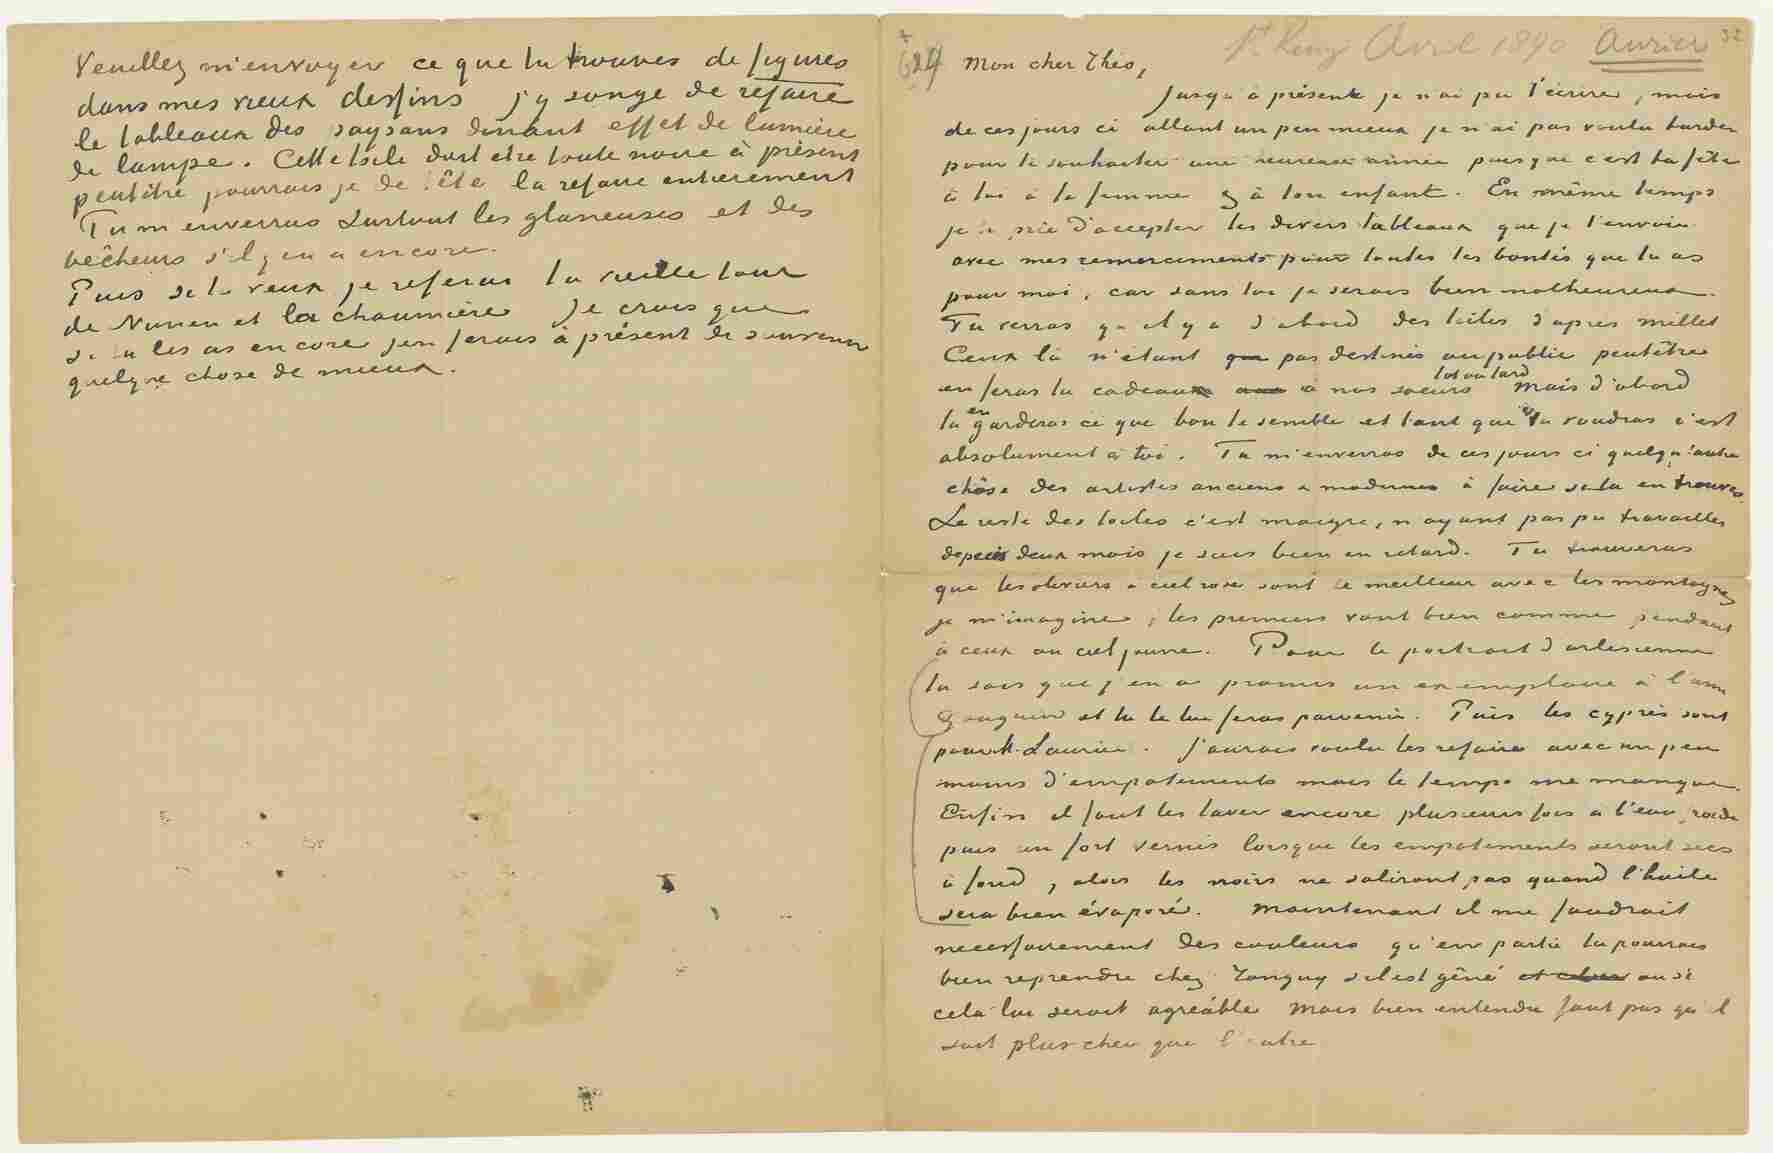 Veuillez m'envoyer ce que tu trouves de figures
dans mes vieux dessins j'y songe de refaire
le tableaux des paysans dinant effet de lumière
de lampe. Cette toile doit etre toute noire à présent
peutêtre pourrais je de tête la refaire entierement
Tu m'enverras surtout les glaneuses et des
bêcheurs s'il y en a encore.
Puis si tu veux je referai la vieille tour
de Nunen et la chaumière Je crois que
si tu les as encore j'en ferais à présent de souvenir
quelque chose de mieux.
624 St Remy Avril 1890 Aurier 32
Mon cher Theo,
Jusqu'à présent je n'ai pu t'écrire, mais
de ces jours ci allant un peu mieux je n'ai pas voulu tarder
pour te souhaiter une heureuse année puisque c'est ta fête
à toi à ta femme & à ton enfant. En même temps
je te prie d'accepter les divers tableaux que je t'envoie
avec mes remerciments pour toutes les bontés que tu as
pour moi, car sans toi je serais bien malheureux.
Tu verras qu'il y a d'abord des toiles d'apres Millet
Ceux là n'étant pas destinés au public peutêtre
en feras tu cadeau à nos soeurs tot ou tard mais d'abord
tu en garderas ce que bon te semble et tant que tu voudras c'est
absolument à toi. Tu m'enverras de ces jours ci quelqu'autre
chôse des artistes anciens & modernes à faire si tu en trouves.
Le reste des toiles c'est maigre, n'ayant pas pu travailler
depuis deux mois je suis bien en retard. Tu trouveras
que les oliviers à ciel rose sont le meilleur avec les montagnes
je m'imagine, les premiers vont bien comme pendant
à ceux au ciel jaune. Pour le portrait d'arlesienne
tu sais que j'en ai promis un exemplaire à l'ami
Gauguin et tu le lui feras parvenir. Puis les cyprès sont
pour M. Laurier. J'aurais voulu les refaire avec un peu
moins d'empatements mais le temps me manque.
Enfin il faut les laver encore plusieurs fois à l'eau froide
puis un fort vernis lorsque les empatements seront secs
à fond, alors les noirs ne saliront pas quand l'huile
sera bien évaporé. Maintenant il me faudrait
necessairement des couleurs qu'en partie tu pourrais
bien reprendre chez Tanguy s'il est gêné ou si
cela lui serait agréable Mais bien entendu faut pas qu'il
soit plus cher que l'autre